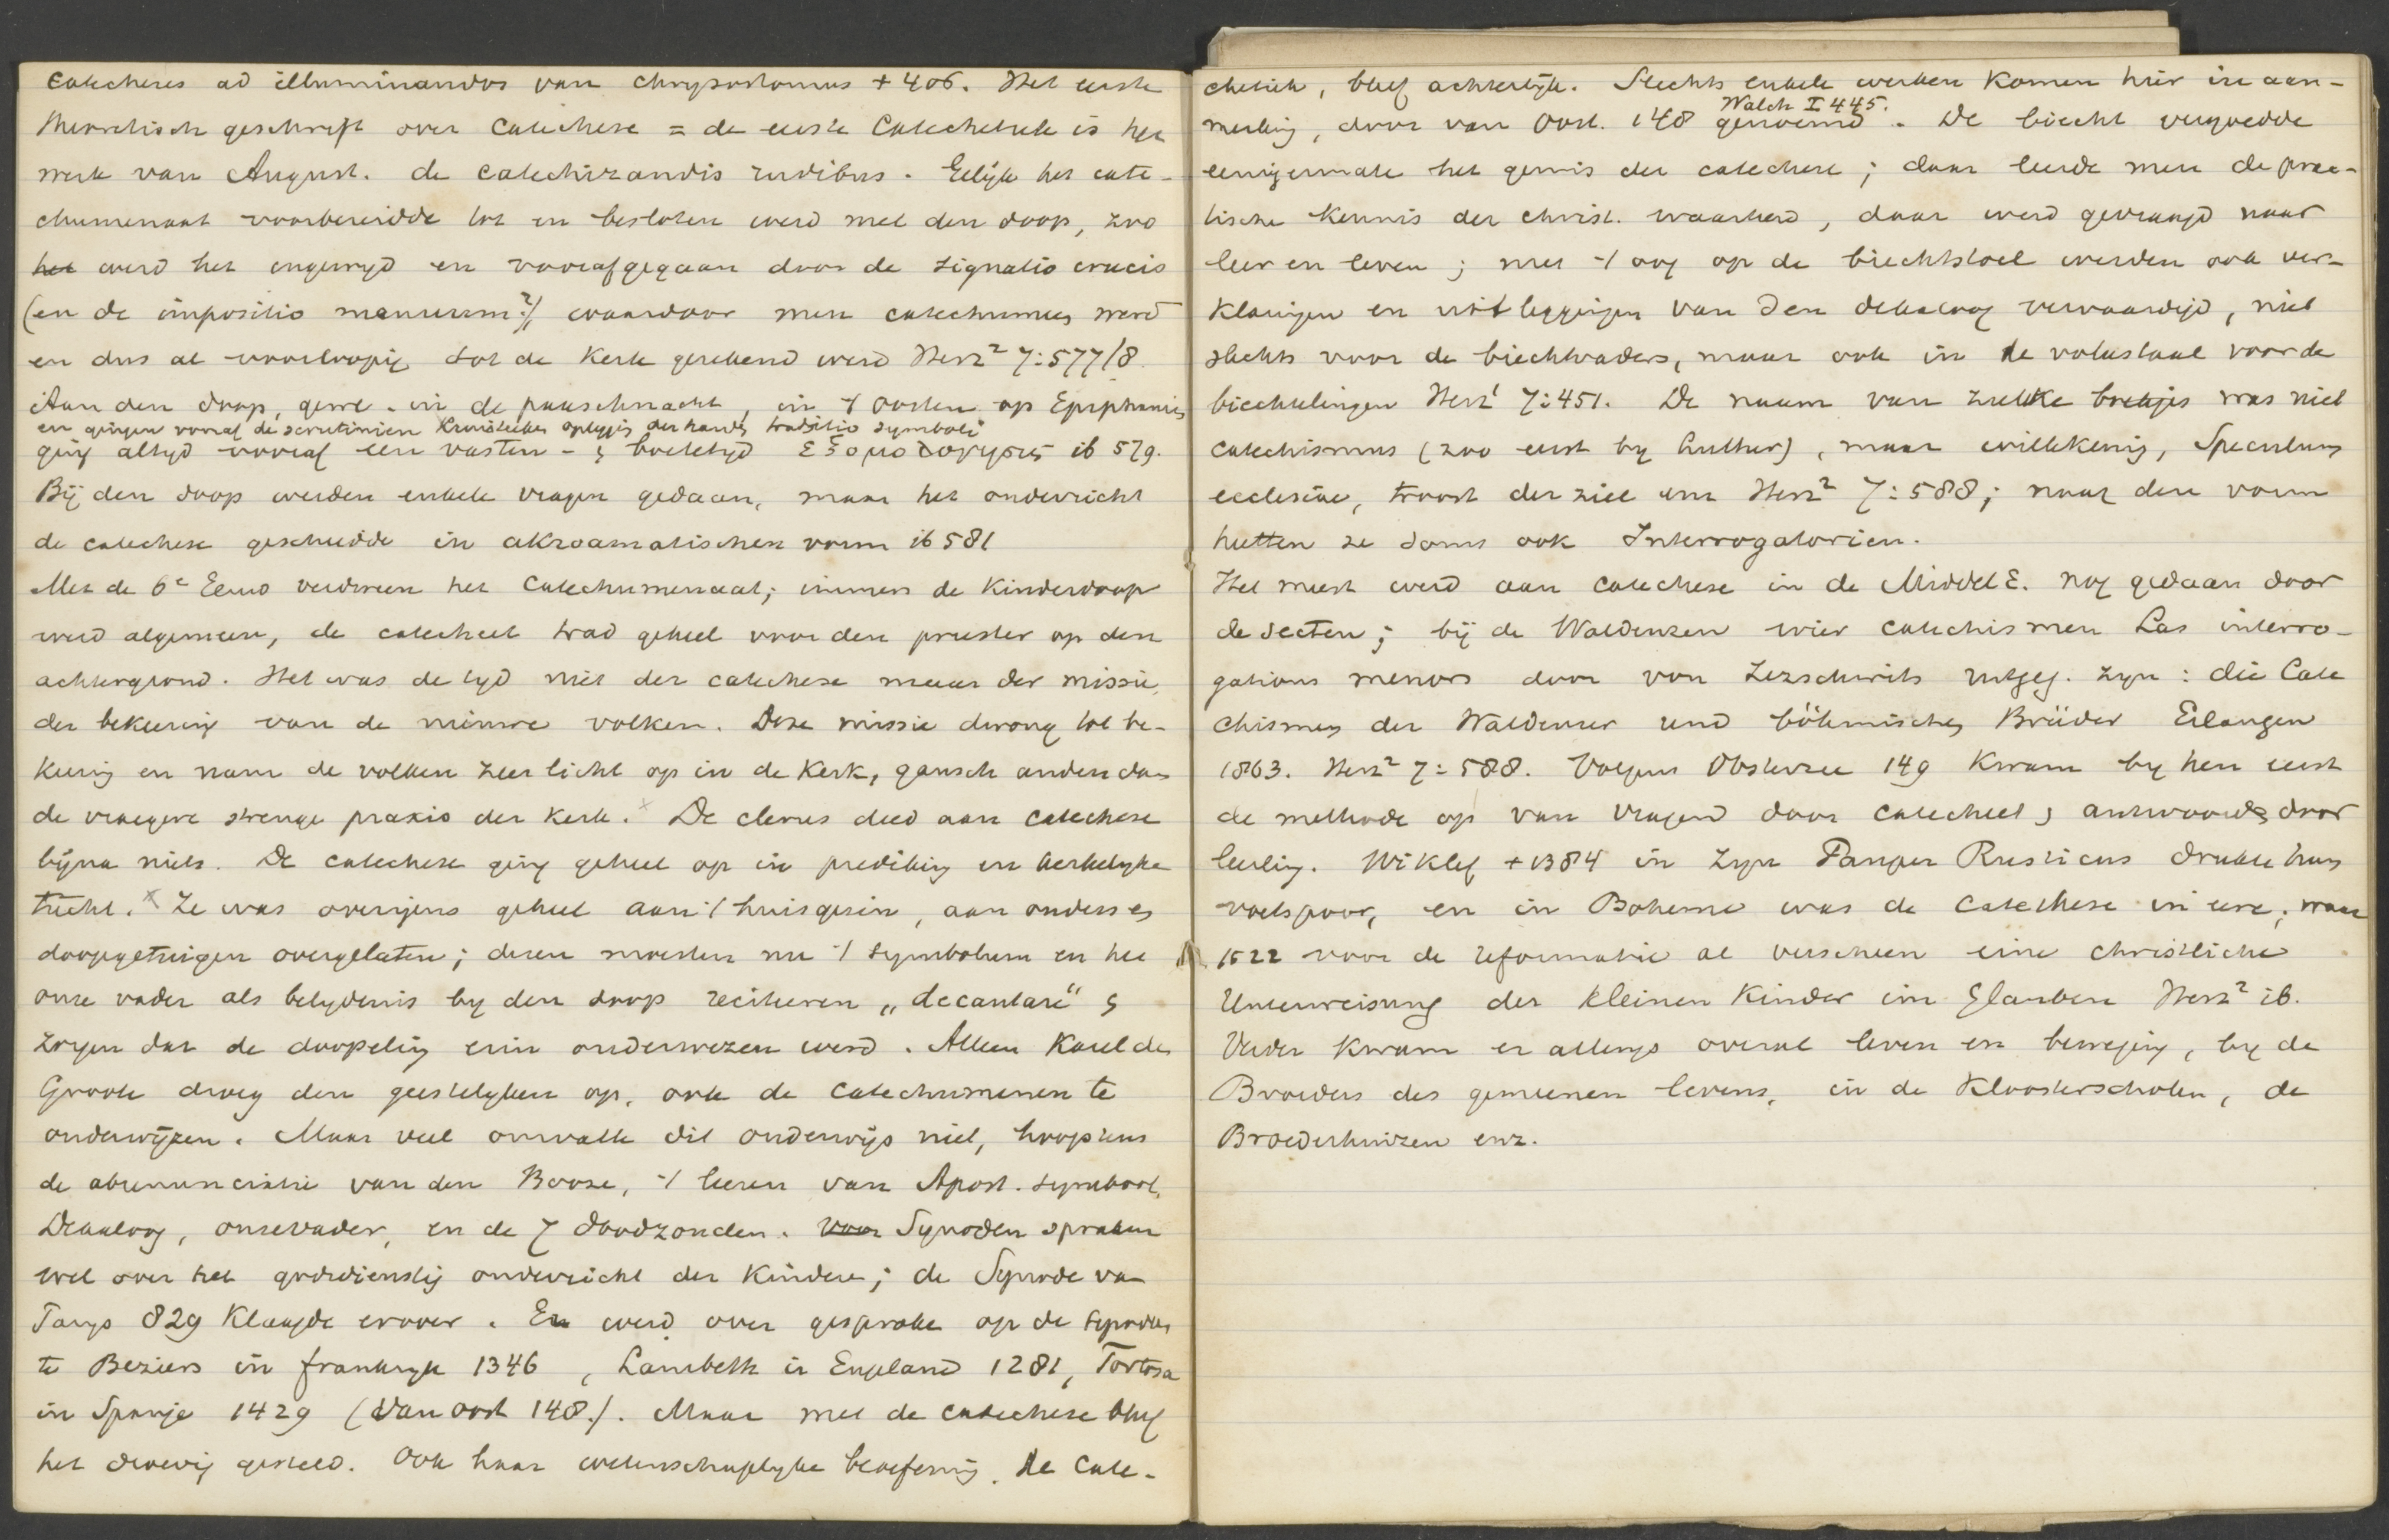 Catecheses ad illuminandos van Chrysostomus + 406. Het eerste
theoretisch geschrift over Catechese = de eerste Catechetiek is het
werk van August. de catechizandis rudibus. Gelijk het cate-
chumenaat voorbereidde tot en besloten werd met den doop, zoo
het werd het ingewijd en voorafgegaan door de signatio crucis
(en de impositio manuum?), waardoor men catechumeen werd
en dus al voorloopig tot de Kerk gerekend werd Herz² 7:577/8.
Aan den doop, gew. in de paaschnacht, in 't oosten op Epiphanie
en gingen vooraf de scrutinien Kruisteeken oplegging der hand, traditio symboli
ging altijd vooraf een vasten- & boetetijd ἐξομολογησις ib 579.
Bij den doop werden enkele vragen gedaan, maar het onderricht
de catechese geschiedde in akroamatischen vorm ib 581
Met de 6e Eeuw verdween het Catechumenaat; immers de Kinderdoop
werd algemeen, de catecheet trad geheel voor den priester op den
achtergrond. Het was de tijd niet der catechese maar der missie,
der bekeering van de nieuwe volken. Deze missie drong tot be-
keering en nam de volken zeer licht op in de Kerk, gansch anders dan
de vroegere strenge praxis der Kerk. x De clerus deed aan catechese
bijna niets. De catechese ging geheel op in prediking en kerkelijke
tucht. x Ze was overigens geheel aan 't huisgezin, aan ouders en
doopgetuigen overgelaten; dezen moesten nu 't symbolum en het
onze vader als belijdenis bij den doop reciteeren „decantare" &
zorgen dat de doopeling erin onderwezen werd. Alleen Karel de
Groote droeg den geestelijken op, ook de catechumenen te
onderwijzen. Maar veel omvatte dit onderwijs niet, hoogstens
de abrenunciatie van den Booze, 't leeren van Apost. symbool,
Decaloog, onzevader, en de 7 doodzonden. Voor Synoden spraken
wel over het godsdienstig onderricht der Kinderen; de Synode van
Parijs 829 Klaagde erover. Er werd over gesproken op de synoden
te Beziers in frankrijk 1346, Lambeth in Engeland 1281, Tortosa
in Spanje 1429 (Van Oost 148). Maar met de catechese bleef
het droevig gesteld. Ook haar wetenschappelijke beoefening. De Cate-
chetiek, bleef achterlijk. Slechts enkele werken Komen hier in aan-
Walch I 445.
merking, door van Oost. 148 genoemd. De biecht vergoedde
eenigermate het gemis der catechese; daar leerde men de prac-
tische Kennis der christ. waarheid, daar werd gevraagd naar
leer en leven; met 't oog op de biechtstoel werden ook ver-
klaringen en uitleggingen van den dekaloog vervaardigd, niet
slechts voor de biechtvaders, maar ook in de volkstaal voor de
biechtelingen Herz¹ 7:451. De naam van zulke boekjes was niet
catechismus (zoo eerst bij Luther), maar willekeurig, Speculum
ecclesiae, troost der ziel enz Herz² 7:588; naar den vorm
heetten ze soms ook Interrogatoriën.
Het meest werd aan catechese in de Middel E. nog gedaan door
de secten; bij de Waldenzen wier catechismen Las interro-
gations menors door von Zezschwitz uitgeg. zijn: die Cate
chismen der Waldenser und böhmischen Brüder Erlangen
1863. Herz² 7:588. Volgens Oosterzee 149 Kwam bij hen eerst
de methode op van vragend door catecheet & antwoord door
leerling. Wiklef +1384 in zijn Pauper Rusticus drukte hun
voetspoor, en in Boheme was de Catechese in eere; waar
1522 voor de reformatie al verscheen eine christliche
Unterweisung der Kleinen Kinder im Glauben Herz² ib.
Verder kwam er allengs overal leven en beweging, bij de
Broeders des gemeenen levens, in de Kloosterscholen, de
Broederhuizen enz.